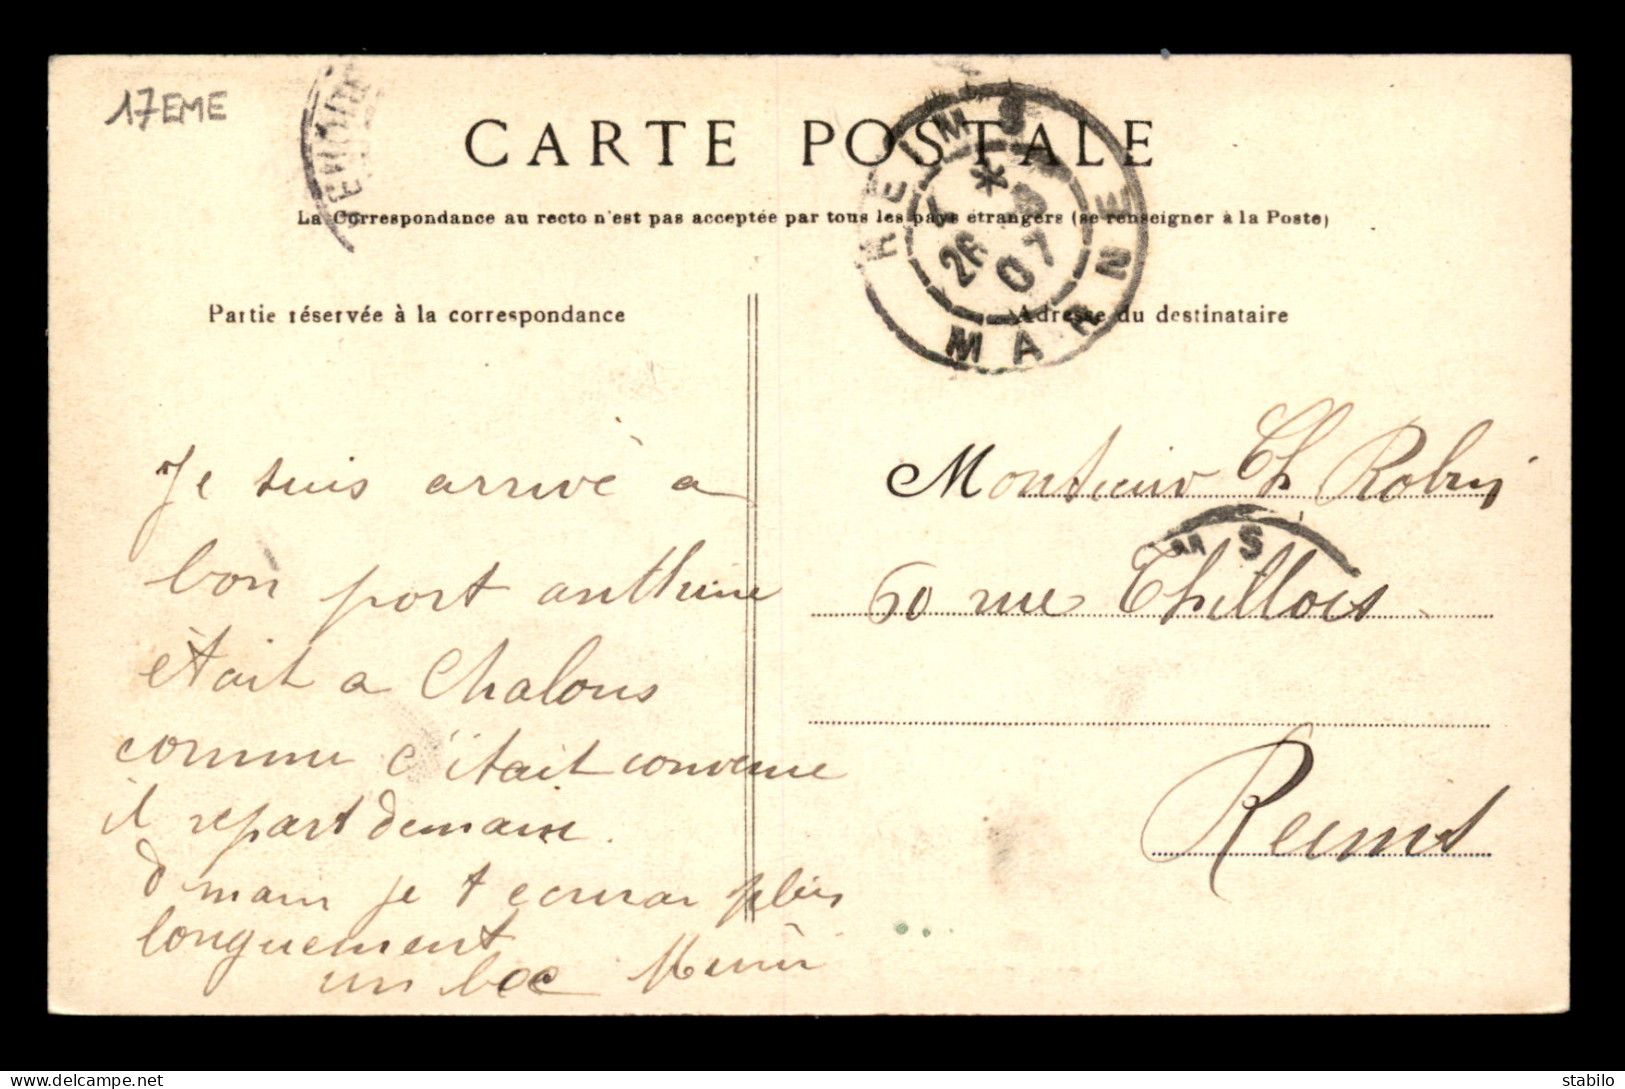 17EME
CARTE POSTALE
La Correspondance au recto n'est pas acceptée par tous les pays étrangers (se renseigner à la Poste)
REIMS
*
26 07
MARNE
Partie réservée à la correspondance
Adresse du destinataire
Je suis arrivé a
bon port
était a Chalons
comme c'était convenue
il repart demain.
demain je t ecrirai plus
longuement
un
Monsieur Ch Robin
MS
60 rue Thillois
Reims
stabilo